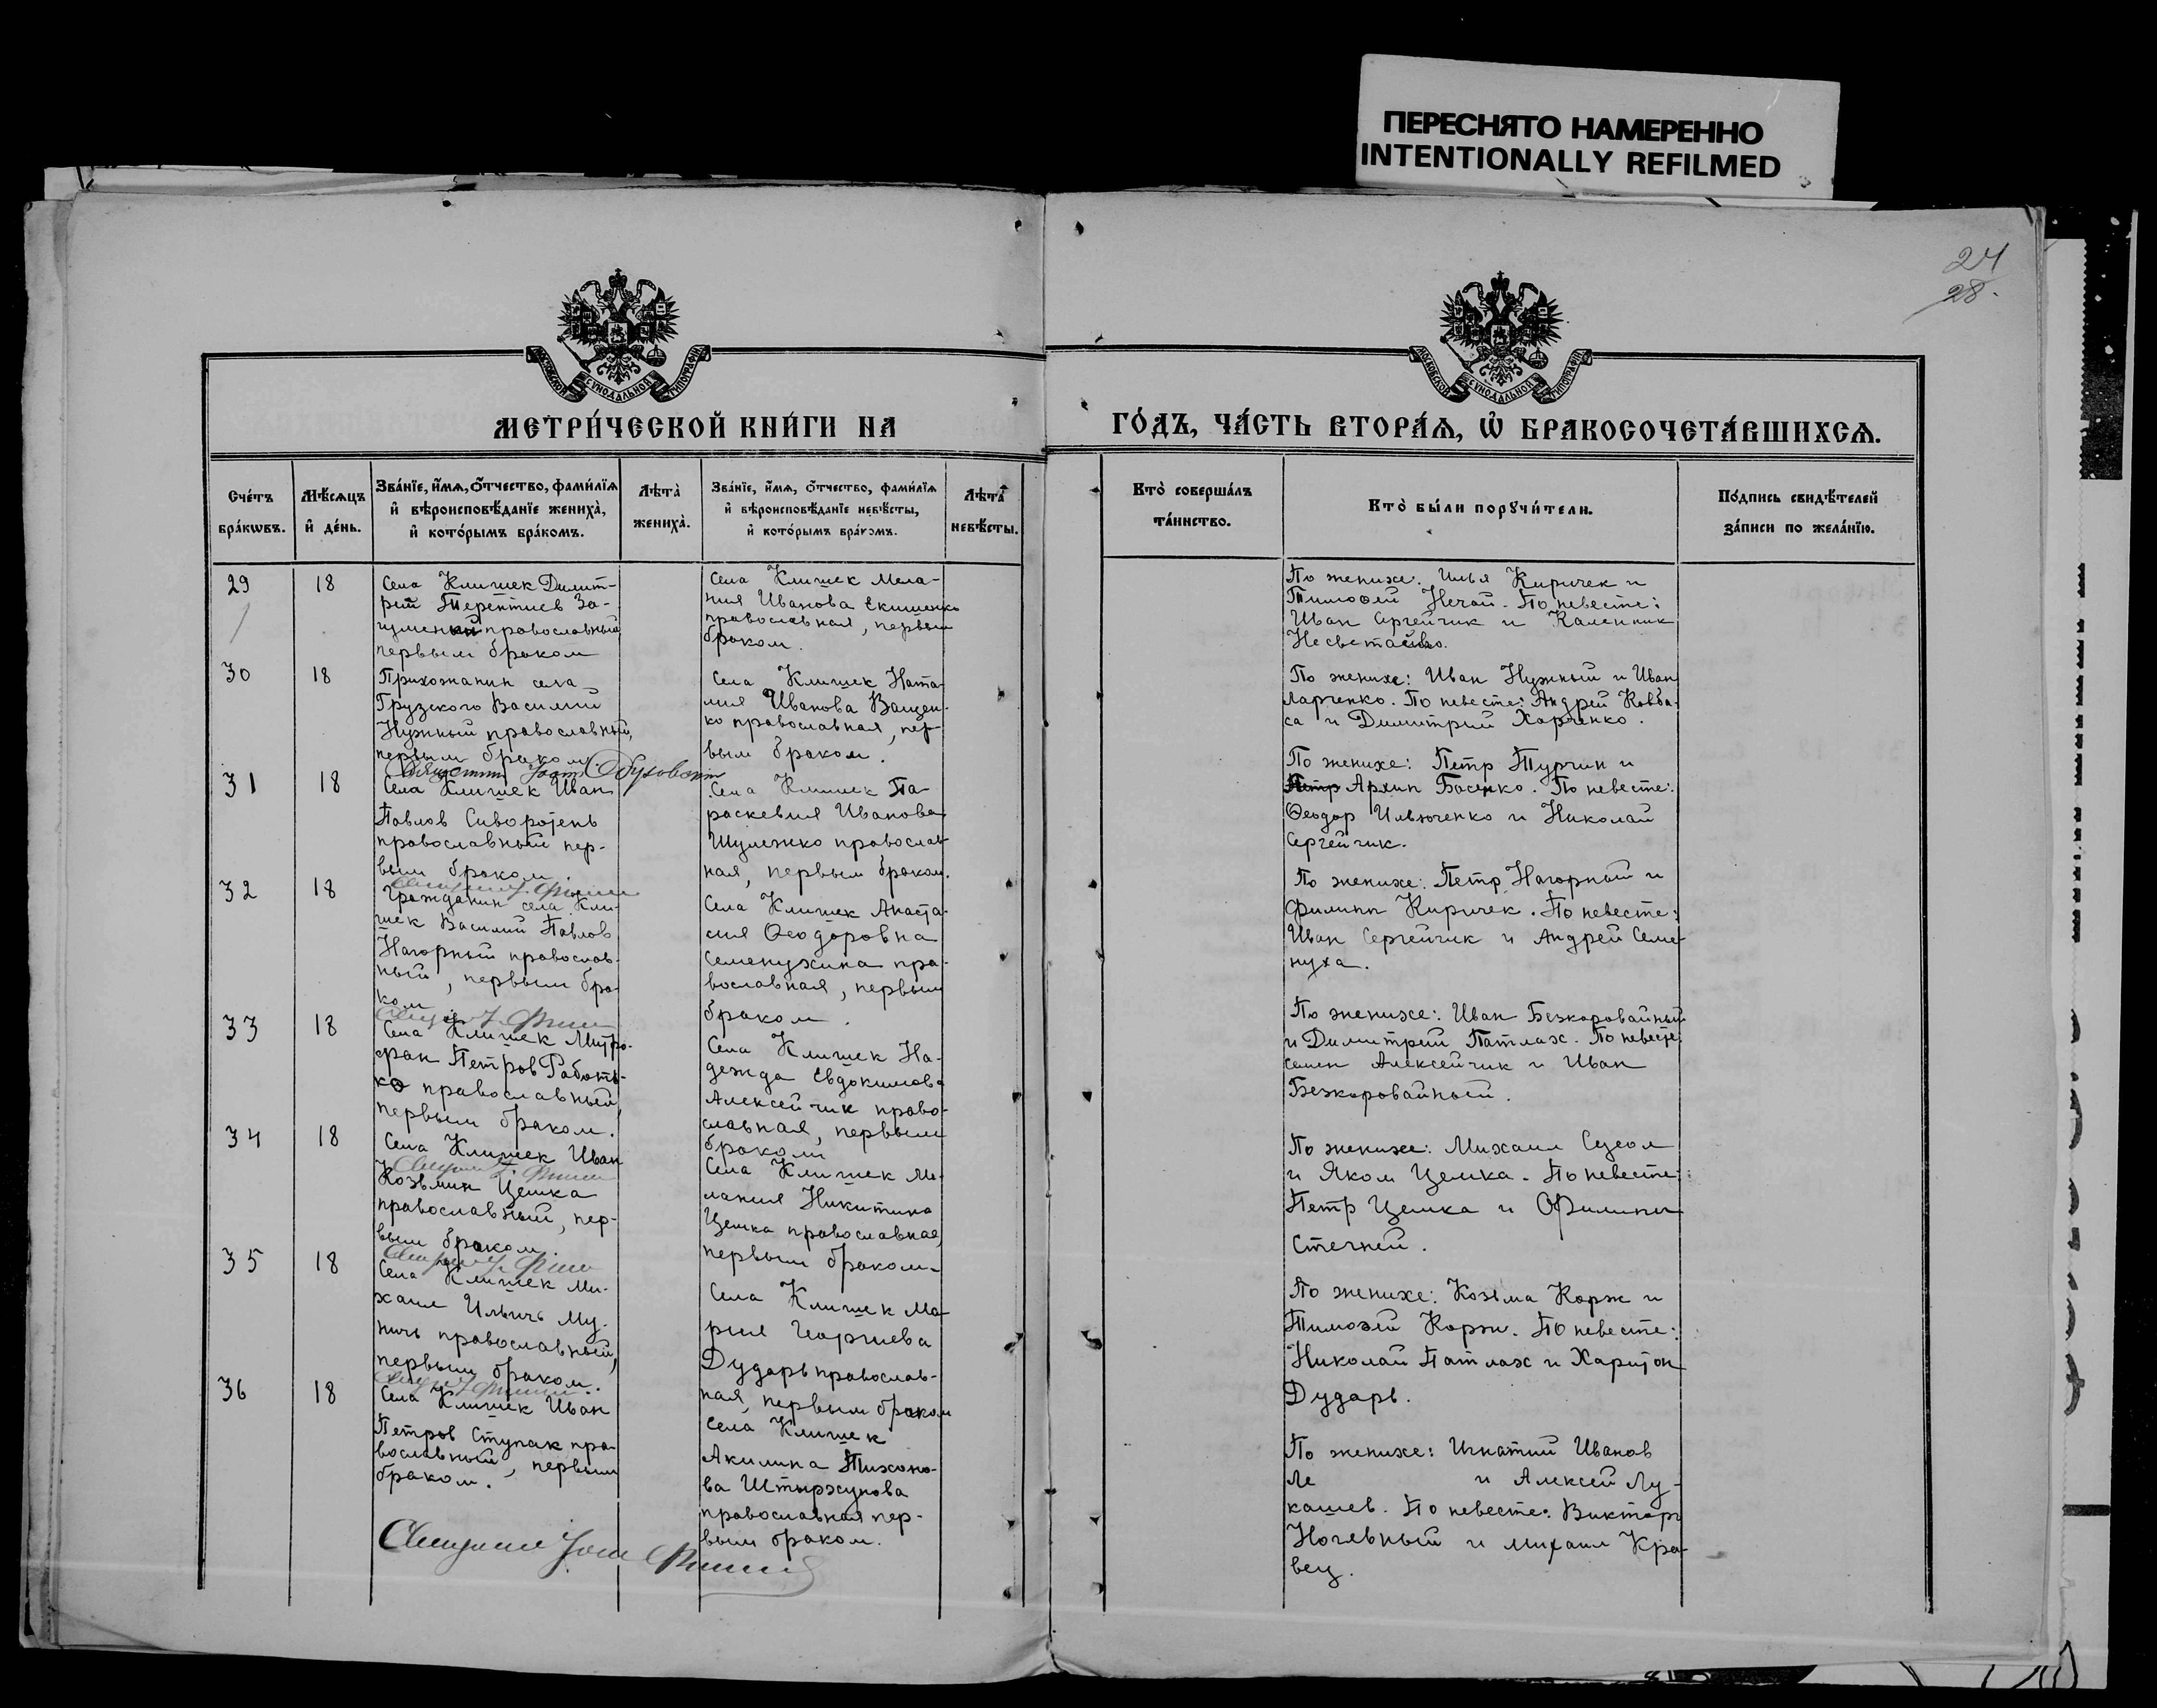 ПЕРЕСНЯТО НАМЕРЕННО
INTENTIONALLY REFILMED
24
28.
МОСКОВСКОЙ СѴНОДАЛЬНОЙ ТИПОГРАФІИ
МОСКОВСКОЙ СѴНОДАЛЬНОЙ ТИПОГРАФІИ
МЕТРИ́ЧЕСКОЙ КНИ́ГИ НА
ГО́ДЪ, ЧА́СТЬ ВТОРА́Ѧ, Ѡ҆ БРАКОСОЧЕТА́ВШИХСѦ.
Сче́тъ
бра́кѡвъ.
Мѣ́сѧцъ
и҆ де́нь.
Зва́нїе, и҆́мѧ, ѻ҆́тчество, фами́лїѧ
и҆ вѣроисповѣ́данїе жениха̀,
и҆ кото́рымъ бра́комъ.
Лѣта̀
жениха̀.
Зва́нїе, и҆́мѧ, ѻ҆́тчество, фами́лїѧ
и҆ вѣроисповѣ́данїе невѣ́сты,
и҆ кото́рымъ бра́комъ.
Лѣта̀
невѣ́сты.
Кто̀ соверша́лъ
та́инство.
Кто̀ бы́ли порꙋчи́тели.
По́дпись свидѣ́телей
за́писи по жела́нїю.
29
18
Села Клишек Димит-
рий Терентиев За-
православный
первым браком
Села Клишек Мела-
ния Иванова Екименко
православная, первым
браком.
По женихе: Илья Киричек и
Тимофей Нечай. По невесте:
Иван Сергейчик и Каленник
Несветайло.
30
18
Прихожанин села
Грузского Василий
Нужный православный,
первым браком.
Села Клишек Ната-
лия Иванова Ващен-
ко православная, пер-
вым браком.
По женихе: Иван Нужный и Иван
Ларченко. По невесте: Андрей Ковба-
са и Димитрий Харченко.
31
18
Села Клишек Иван
Павлов Сиворотень
православный пер-
вым браком.
Села Клишек Па-
раскевия Иванова
Шулежко православ-
ная, первым браком.
По женихе: Петр Турчин и
Петр Архип Босенко. По невесте:
Ѳеодор Ильюченко и Николай
Сергейчик.
32
18
Гражданин села Кли-
шек Василий Павлов
Нагорный православ-
ный, первым бра-
ком
Села Клишек Анаста-
сия Ѳеодоровна
Семенухина пра-
вославная, первым
браком.
По женихе: Петр Нагорный и
Филипп Киричек. По невесте:
Иван Сергейчик и Андрей Семе-
нуха.
33
18
Села Клишек Митро-
фан Петров Работь-
ко православный,
первым браком.
Села Клишек На-
дежда Евдокимова
Алексейчик право-
славная, первым
браком
По женихе: Иван Безкоровайный
и Димитрий Патлах. По невесте:
Семен Алексейчик и Иван
Безкоровайный.
34
18
Села Клишек Иван
Козьмин Цемка
православный, пер-
вым браком.
Села Клишек Ме-
лания Никитина
Цемка православная,
первым браком.
По женихе: Михаил
и Яком Цемка. По невесте:
Петр Цемка и Филипп
35
18
Села Клишек Ми-
хаил Ильичь Му-
ничь православный,
первым браком.
Села Клишек Ма-
рия Георгиева
Дударь православ-
ная, первым браком
По женихе: Козьма Корж и
Тимофей Корж. По невесте:
Николай Патлах и Харитон
Дударь.
36
18
Села Клишек Иван
Петров Ступак пра-
вославный, первым
браком.
Села Клишек
Акилина Тихоно-
ва Штырхунова
православная пер-
вым браком.
По женихе: Игнатий Иванов
Ле и Алексей Лу-
кашев. По невесте: Виктор
Ночевный и Михаил Кра-
вец.